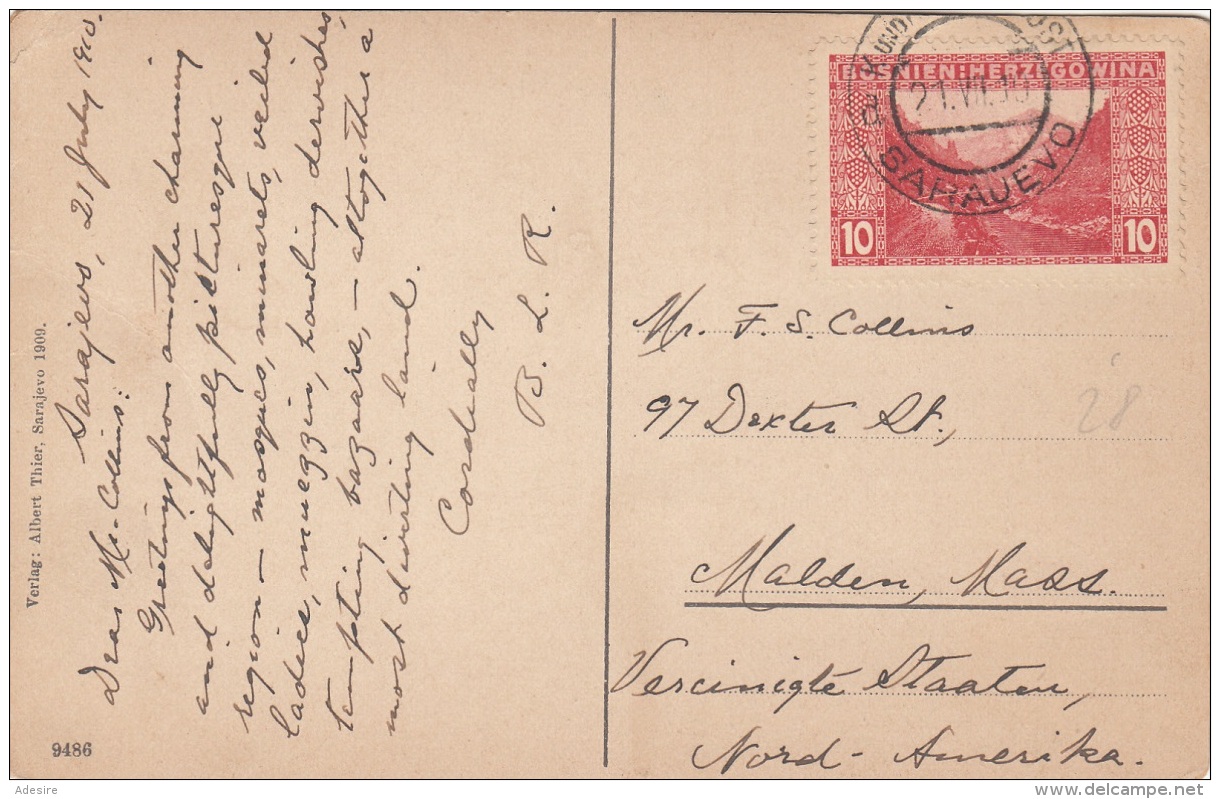 Sarajevo, 21 July 1910.
Dear Mr. Collins:
Greetings from another charming
and delightfully picturesque
region — mosques, minarets, veiled
ladies, muezzin, howling dervishes,
tempting bazaars, — altogether a
most diverting land.
Cordially
B. L. R.
Verlag: Albert Thier, Sarajevo 1909.
9486
BOSNIEN:HERZEGOWINA
10 10
21.VII.10
SARAJEVO
Mr. F. S. Collins
97 Dexter St.,
Malden, Mass.
Vereinigte Staaten,
Nord-Amerika.
28
Adesire
www.delcampe.net